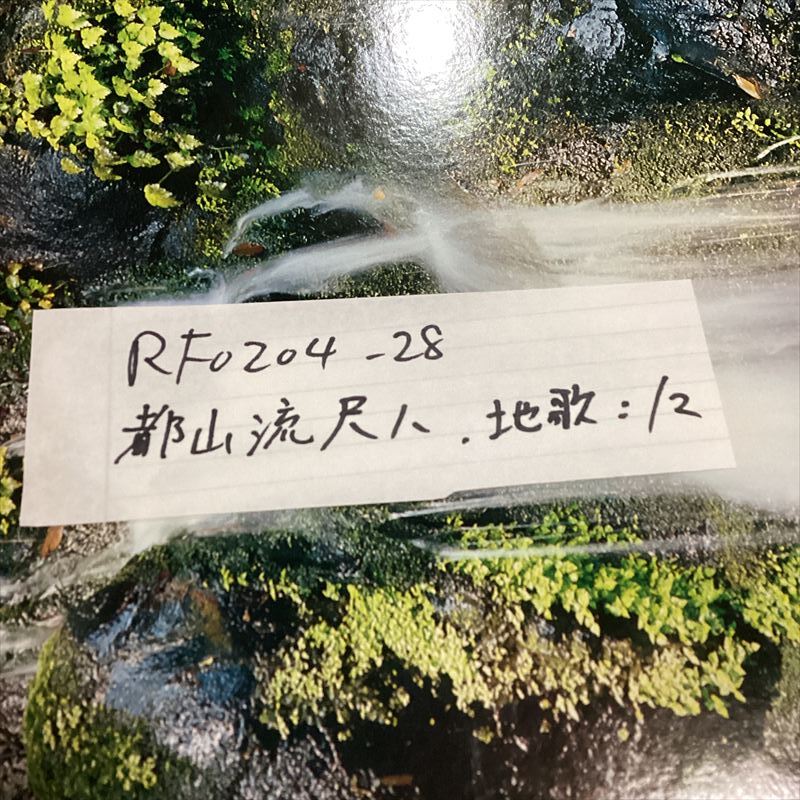 RF0204-28
都山流尺八.地歌:12